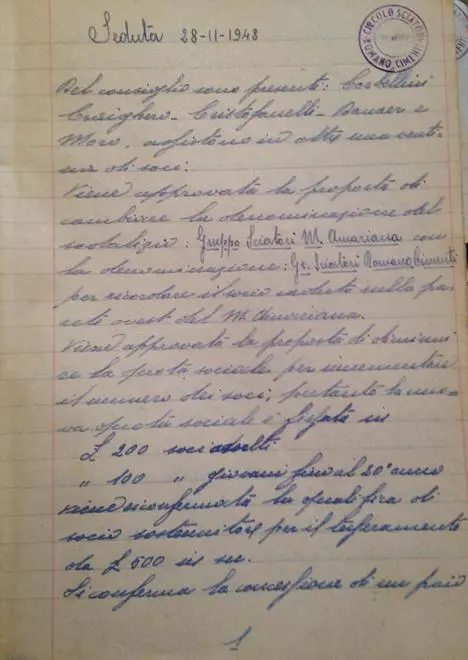 Seduta 28-11-1948
CIRCOLO SCIATORI
ROMANO CIMENTI
Del consiglio sono presenti: Castellini
Craighero - Cristofanelli - Danser e
Moro, assistono in oltre una venti-
na di soci:
Viene approvata la proposta di
cambiare la denominazione del
sodalizio: Gruppo Sciatori M. Amariana con
la denominazione: Gr. Sciatori Romano Cimenti
per ricordare il socio caduto sulla pa-
rete ovest del M. Amariana.
Viene approvata la proposta di diminui
re la quota sociale per incrementare
il numero dei soci; pertanto la nuo-
va quota sociale è fissata in
£ 200 soci adulti
" 100 " giovani fino al 20° anno
Viene riconfermata la qualifica di
socio sostenitore per il tesseramento
da £ 500 in su.
Si conferma la concessione di un paio
1